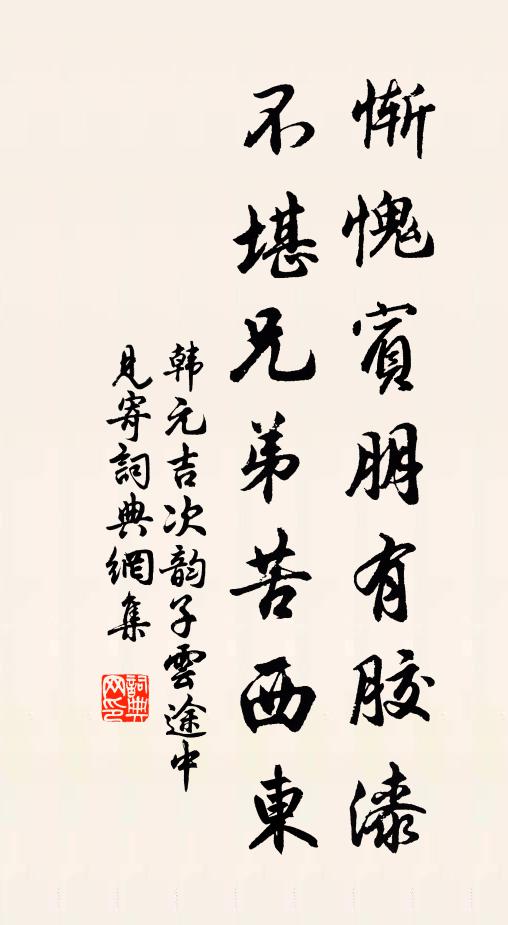 惭愧賓朋有胶漆
不堪兄弟苦西東
韩元吉次韵子雲途中
見寄詞典網集
詞典
网印